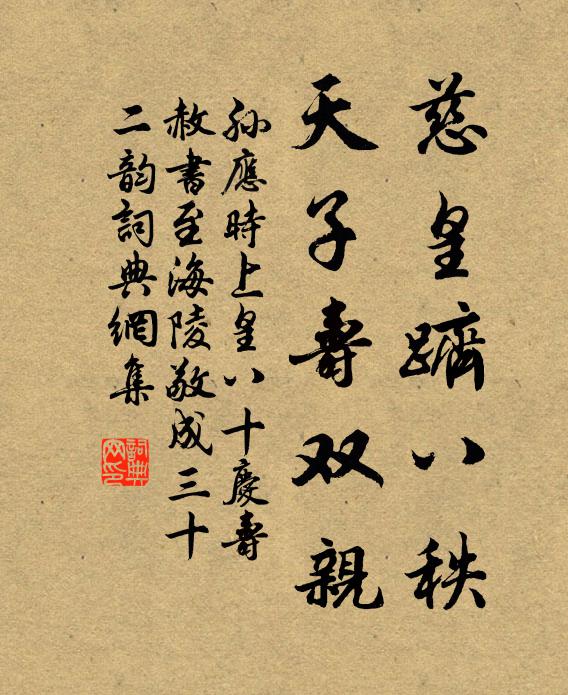 慈皇躋八秩
天子壽双親
孙應時上皇八十慶壽
赦書至海陵敬成三十
二韵詞典網集
詞典网印